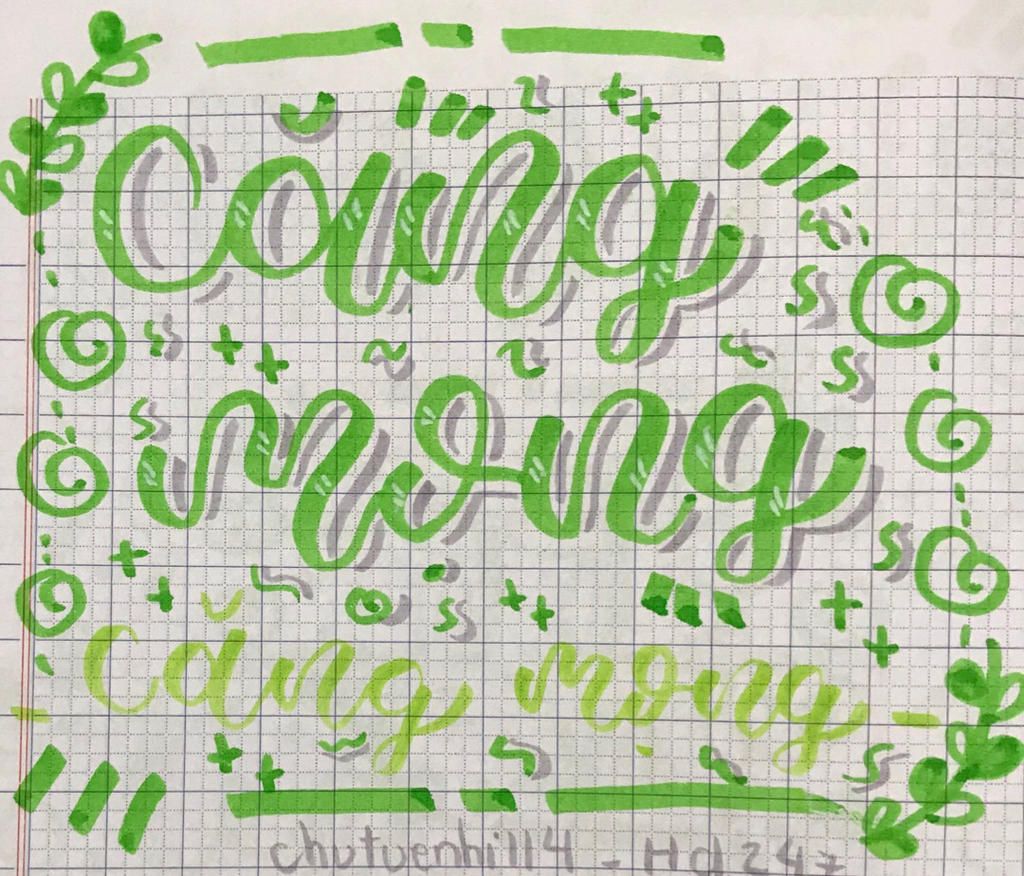 Căng
mọng
Căng mọng
chutuenhi114 - Hd247